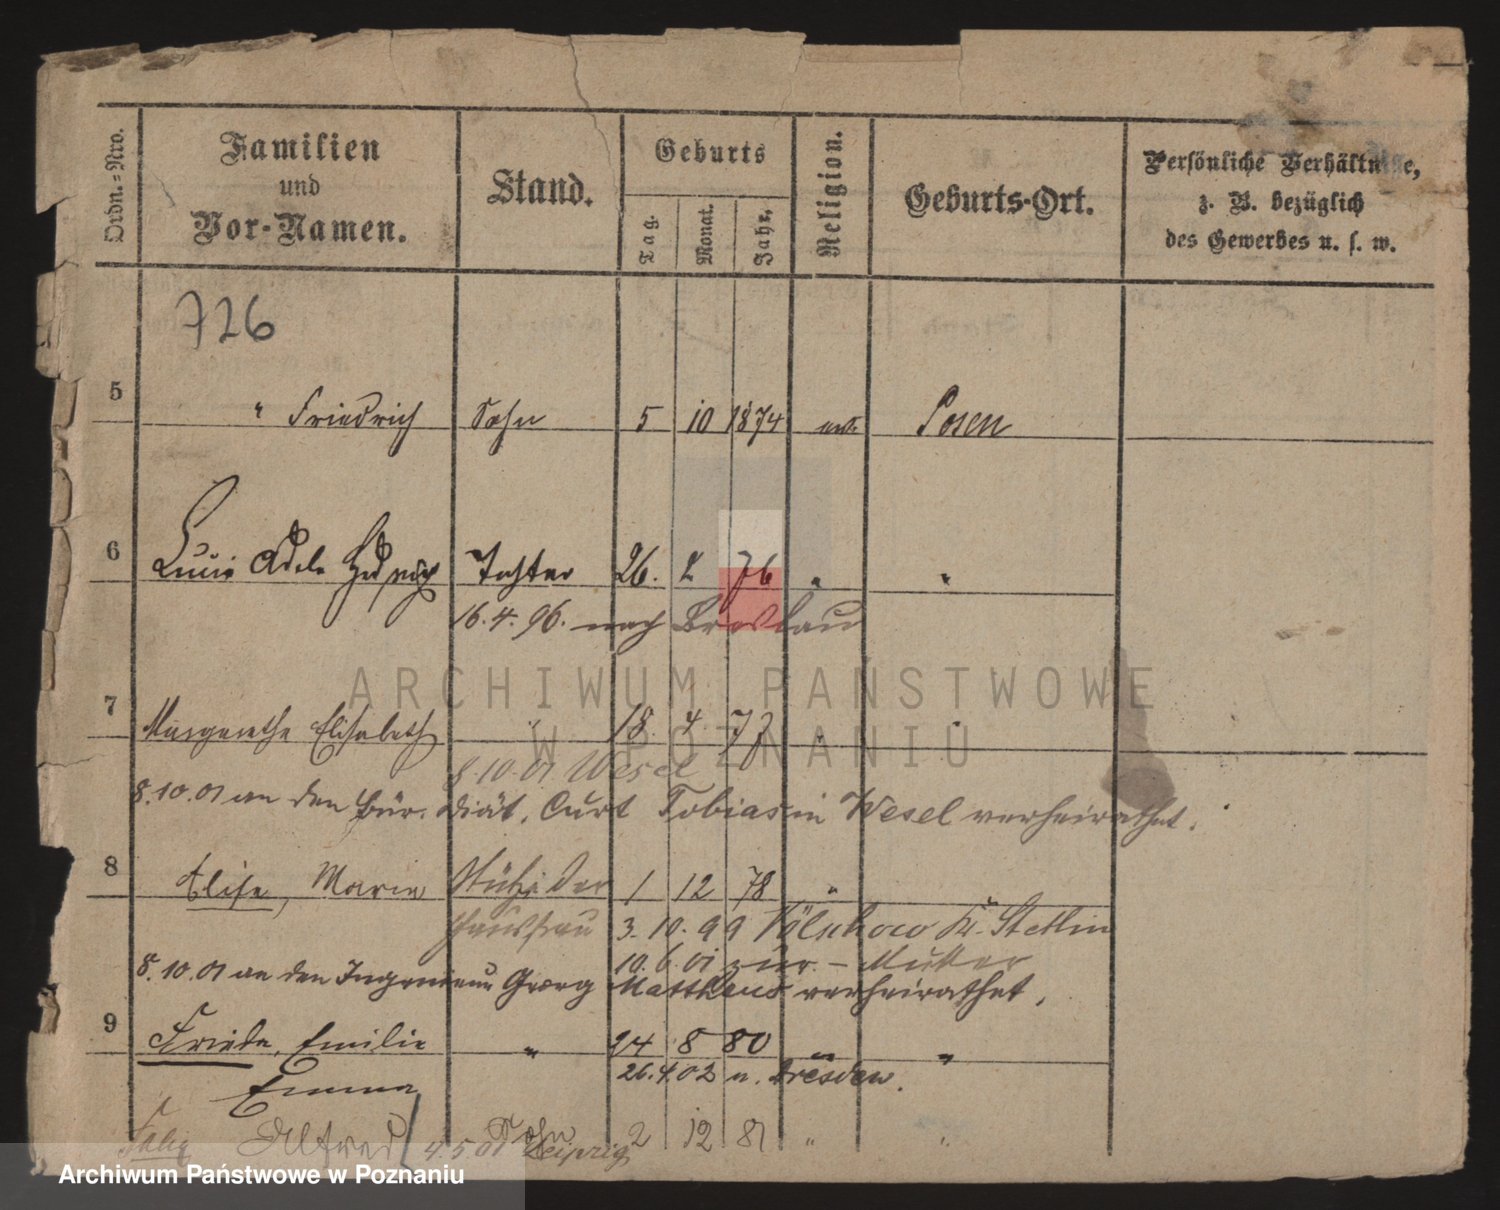 Ordn.-Nro.
Familien
und
Vor-Namen.
Stand.
Geburts
Tag.
Monat.
Jahr.
Religion.
Geburts-Ort.
Persönliche Verhältnisse,
z. B. bezüglich
des Gewerbes u. s. w.
726
5 " Friedrich Sohn 5 10 1874 ev. Posen
6 Lucie Adele Hedwig Tochter 26. 2 76 " "
16.4.96. nach Breslau
7 Margarethe Elisabeth " 18. 4 77 " "
8.10.01 Wesel
8.10.01 an den Bür. Diät. Curt Tobias in Wesel verheirathet.
8 Elise, Marie Stütze der 1 12 78 "
Hausfrau 3.10.99 Völschow Kr. Stettin
10.6.01 zur - Mutter
8.10.01 an den Ingenieur Georg Matthäus verheirathet.
9 Frieda, Emilie " 24 8 80 " "
Emma 26.4.02 n. Dresden.
Felix Alfred Sohn 2 12 81 " "
4.5.01 Leipzig
ARCHIWUM PAŃSTWOWE
W POZNANIU
Archiwum Państwowe w Poznaniu